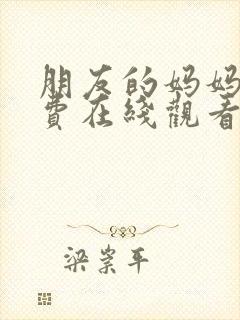 朋友的妈妈
費在綫觀看
梁崇平